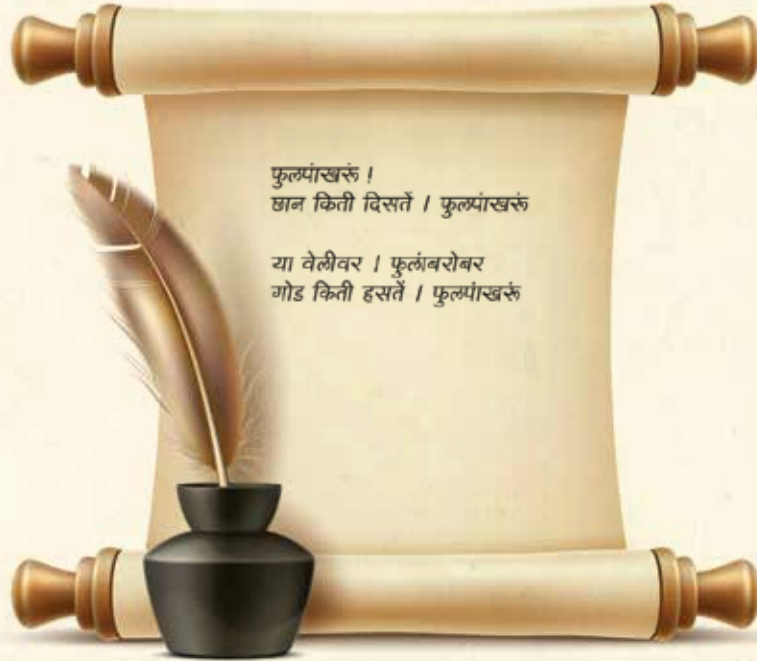 फुलपांखरूं !
छान किती दिसतें । फुलपांखरूं
या वेलीवर । फुलांबरोबर
गोड किती हसतें । फुलपांखरूं